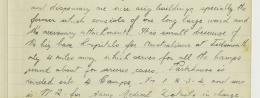 and dispensary are nice airy buildings, specially the
former which consists of one long large ward and
the necessary attachments. Has small because of
the big base Hospitals for Australians at
only 20 miles away which serves for all the camps
round about for serious cases. Parkhouse is
divided into 2 Camps. No 1 & 2 and mine
is No 2 for Army Medical Details in charge